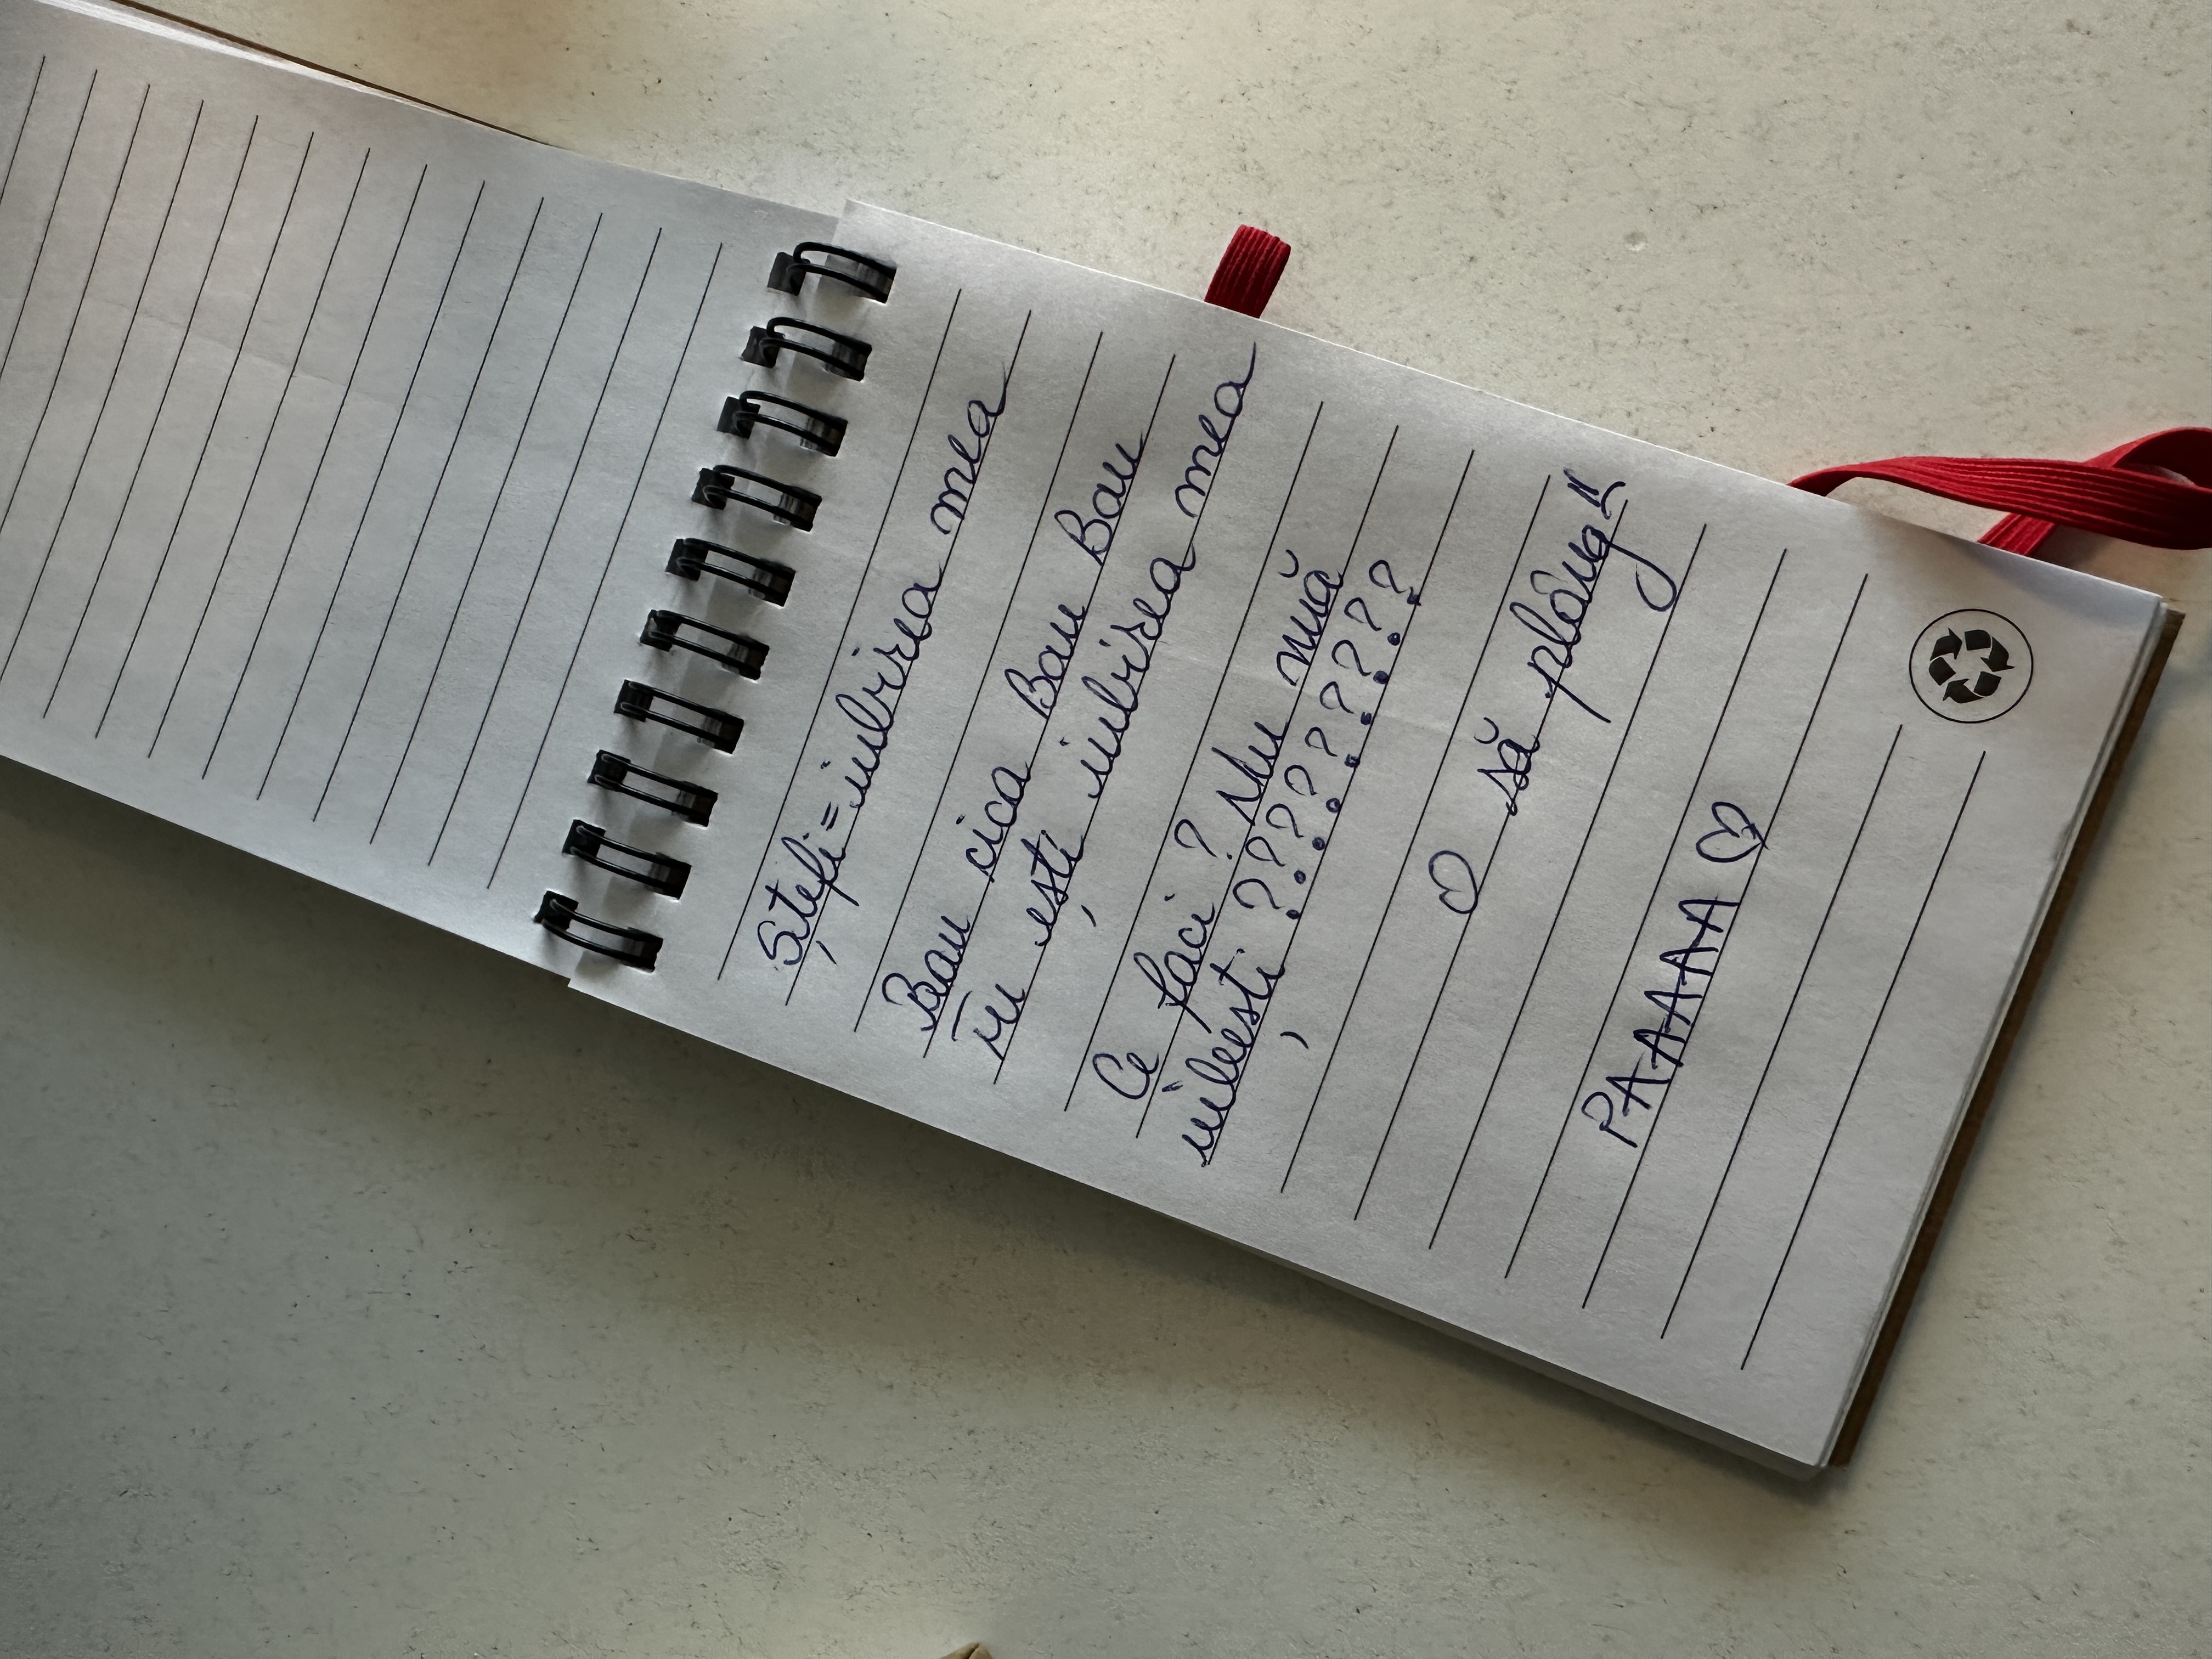 Ștefi = iubirea mea
Bau cica Bau Bau
Tu ești iubirea mea
Ce faci? Nu mă
iubești ??????????
O să plâng!!
PAAAAA ♡